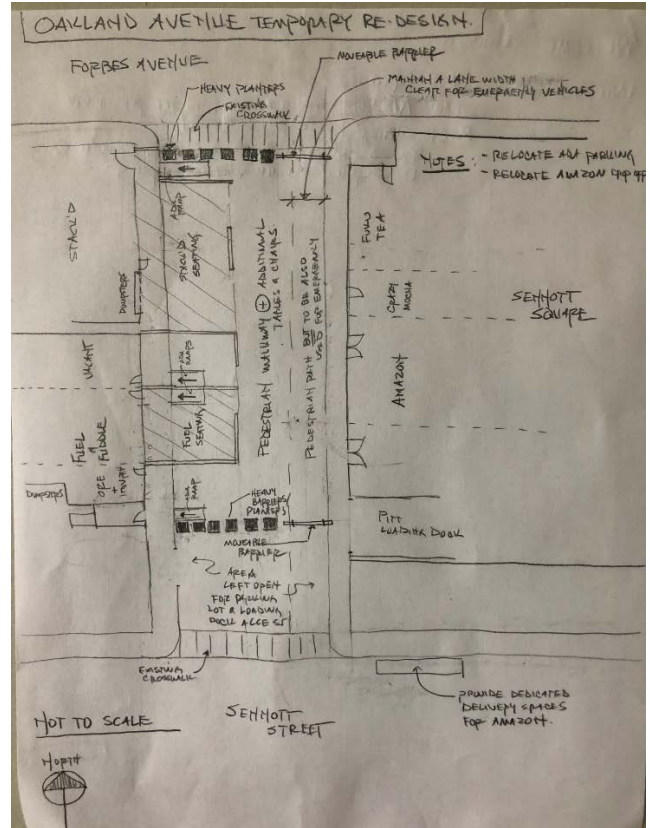 OAKLAND AVENUE TEMPORARY RE-DESIGN.
FORBES AVENUE
MOVEABLE BARRIER
HEAVY PLANTERS
EXISTING
CROSSWALK
MAINTAIN A LANE WIDTH
CLEAR FOR EMERGENCY VEHICLES
NOTES: - RELOCATE ADA PARKING
- RELOCATE AMAZON DROP OFF
STACK'D
DUMPSTERS
ADA
RAMP
STACK'D
SEATING
PEDESTRIAN WALKWAY + ADDITIONAL
TABLES & CHAIRS.
PEDESTRIAN PATH BUT TO BE ALSO
USED FOR EMERGENCY
FUKU
TEA
CRAZY
MOCHA
AMAZON
SENNOTT
SQUARE
VACANT
RAMPS
FUEL &
FUDDLE
DUMPSTERS
FUEL
SEATING
ADA
RAMP
HEAVY
BARRIERS/
PLANTERS
PITT
LOADING DOCK
MOVEABLE
BARRIER
AREA
LEFT OPEN
FOR PARKING
LOT & LOADING
DOCK ACCESS
EXISTING
CROSSWALK
PROVIDE DEDICATED
DELIVERY SPACES
FOR AMAZON.
NOT TO SCALE
SENNOTT
STREET
NORTH